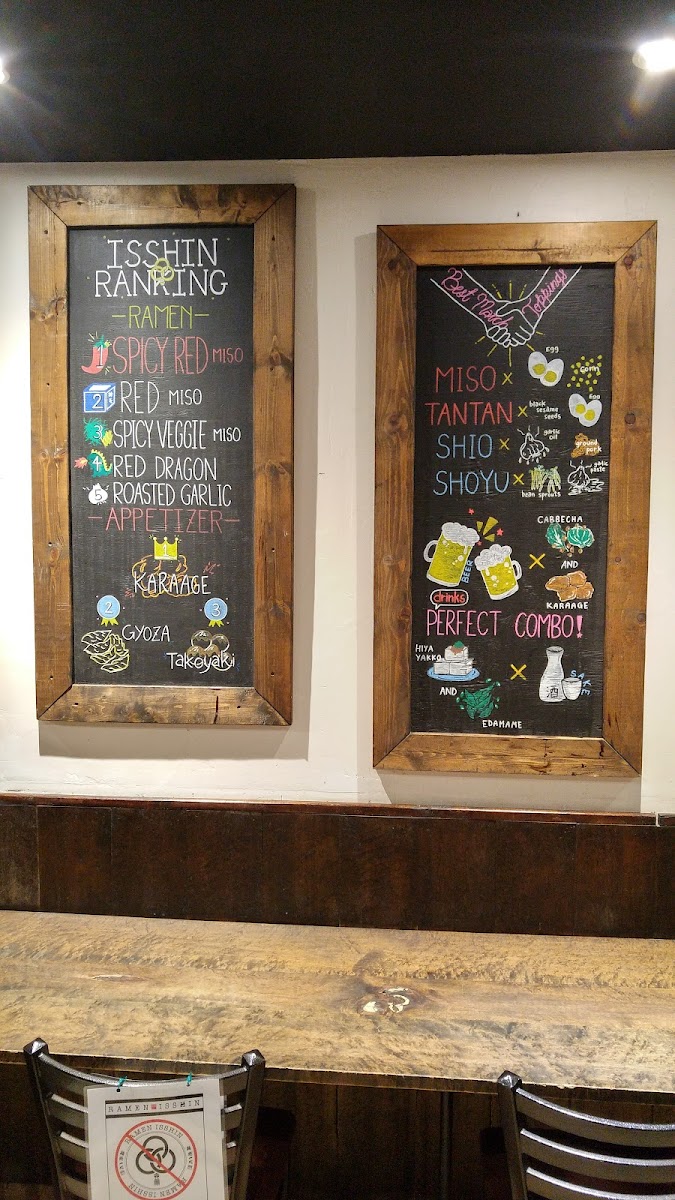 ISSHIN
RANKING
-RAMEN-
1 SPICY RED MISO
2 RED MISO
3 SPICY VEGGIE MISO
4 RED DRAGON
5 ROASTED GARLIC
-APPETIZER-
1
KARAAGE
2 3
GYOZA
Takoyaki
Best Match Toppings
Egg
corn
MISO ×
Egg
TANTAN × black sesame seeds
garlic oil
SHIO × ground pork
garlic paste
SHOYU × bean sprouts
CABBECHA
BEER × AND
drinks KARAAGE
PERFECT COMBO!
HIYA
YAKKO
× 酒 SAKE
AND
EDAMAME
RAMEN ISSHIN
RAMEN ISSHIN
RAMEN ISSHIN